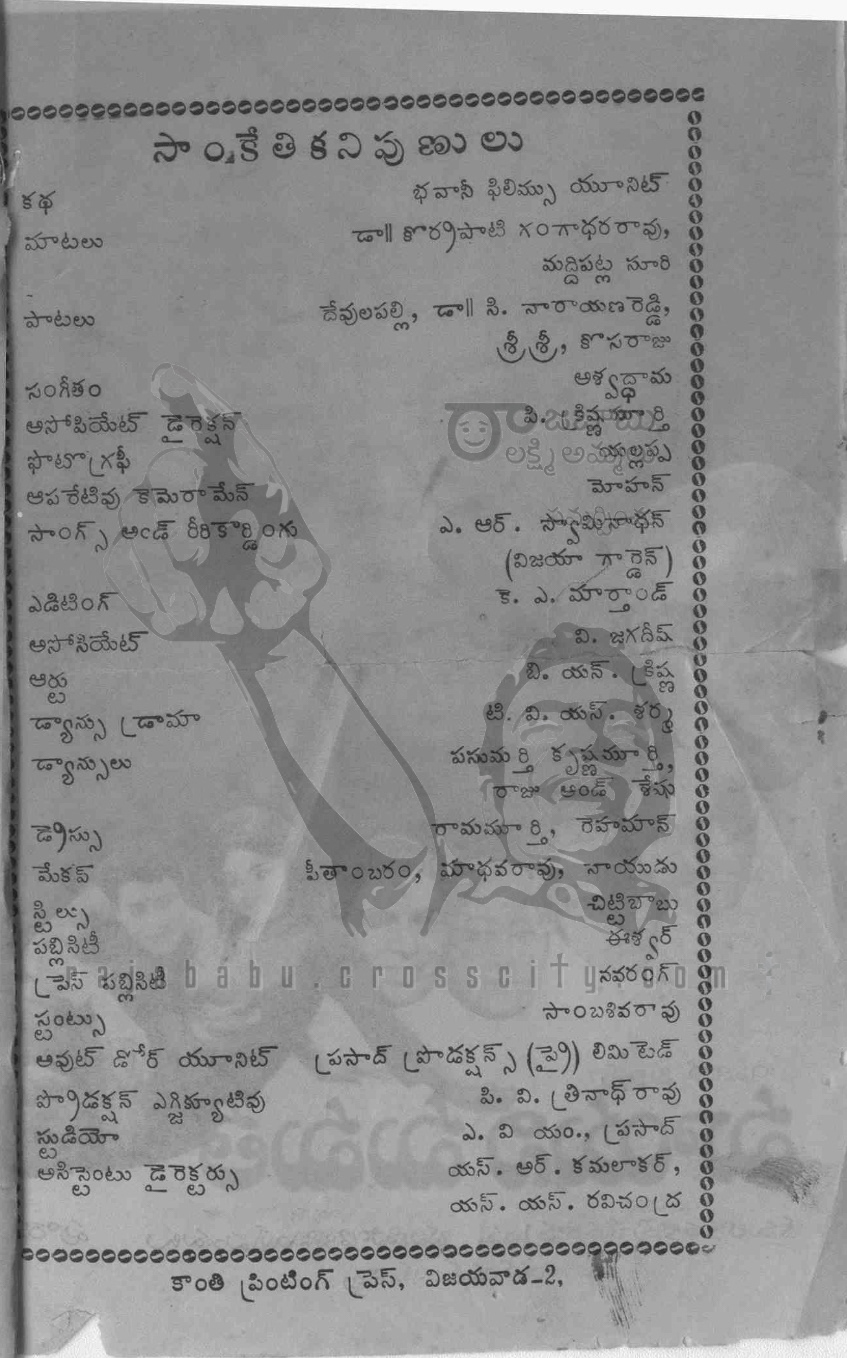 సాంకేతిక నిపుణులు
కథ భవానీ ఫిలిమ్సు యూనిట్
మాటలు డా॥ కొర్రపాటి గంగాధరరావు,
మద్దిపట్ల సూరి
పాటలు దేవులపల్లి, డా॥ సి. నారాయణరెడ్డి,
శ్రీ శ్రీ, కొసరాజు
సంగీతం అశ్వద్ధామ
అసోషియేట్ డైరెక్షన్ పి. క్రిష్ణమూర్తి
ఫొటోగ్రఫీ యల్లప్ప
ఆపరేటివు కెమెరామేన్ మోహన్
సాంగ్స్ అండ్ రీరికార్డింగు ఎ. ఆర్. స్వామినాధన్
(విజయా గార్డెన్)
ఎడిటింగ్ కె. ఎ. మార్తాండ్
అసోసియేట్ వి. జగదీష్
ఆర్టు బి. యన్. క్రిష్ణ
డ్యాన్సు డ్రామా టి. వి. యస్. శర్మ
డ్యాన్సులు పసుమర్తి కృష్ణమూర్తి,
రాజు అండ్ శేషు
డ్రెస్సు రామమూర్తి, రెహమాన్
మేకప్ పీతాంబరం, మాధవరావు, నాయుడు
స్టిల్సు చిట్టిబాబు
పబ్లిసిటీ ఈశ్వర్
ప్రెస్ పబ్లిసిటీ నవరంగ్
స్టంట్సు సాంబశివరావు
అవుట్ డోర్ యూనిట్ ప్రసాద్ ప్రొడక్షన్స్ (ప్రై) లిమిటెడ్
ప్రొడక్షన్ ఎగ్జిక్యూటివు పి. వి. త్రినాధ్ రావు
స్టుడియో ఎ. వి యం., ప్రసాద్
అసిస్టెంటు డైరెక్టర్సు యస్. అర్. కమలాకర్,
యస్. యస్. రవిచంద్ర
కాంతి ప్రింటింగ్ ప్రెస్, విజయవాడ-2,
rajababu.crosscity.com